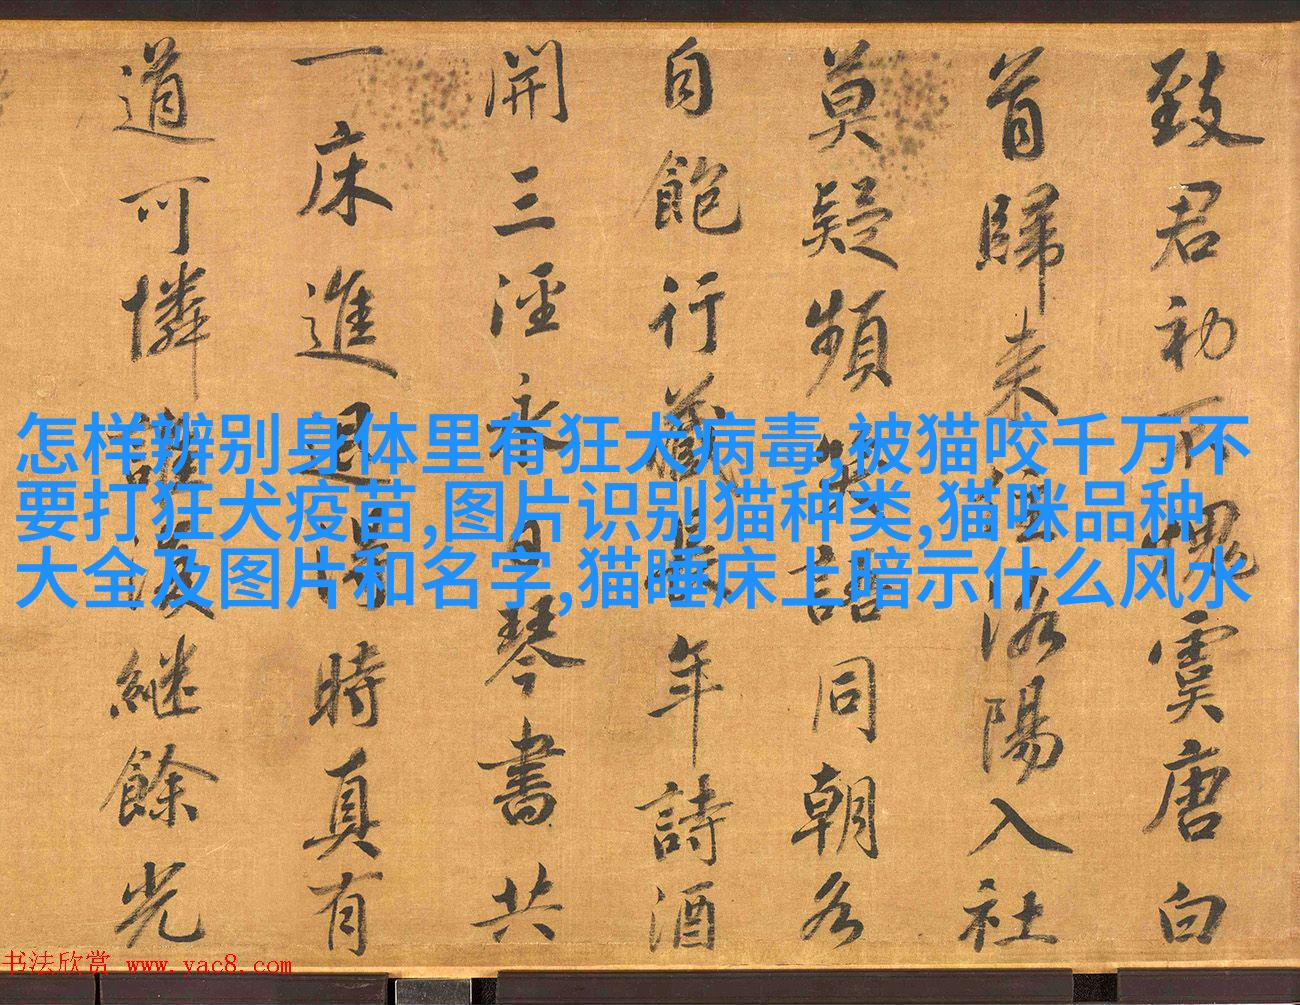 致君初不愧虞唐白
首歸来住洛陽入社
莫疑頻笑語同朝各
自飽行藏年詩酒
開三涇永日琴書共
一床進退得時真有
道可憐誰復繼餘光
怎样辨别身体里有狂犬病毒,被猫咬千万不
要打狂犬疫苗,图片识别猫种类,猫咪品种
大全及图片和名字,猫睡床上暗示什么风水
书法欣赏 www.yac8.com